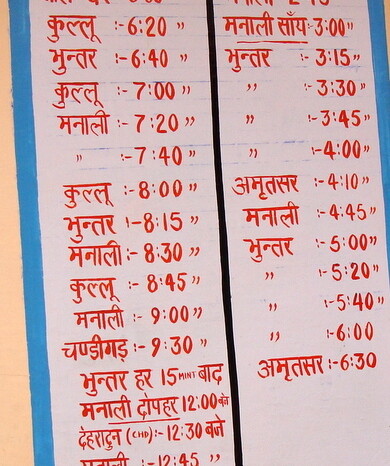 कुल्लू :- 6:20 ”
भुन्तर :- 6:40 ”
कुल्लू :- 7:00 ”
मनाली :- 7:20 ”
” :- 7:40 ”
कुल्लू :- 8:00 ”
भुन्तर :- 8:15 ”
मनाली :- 8:30 ”
कुल्लू :- 8:45 ”
मनाली :- 9:00 ”
चण्डीगड़ :- 9:30 ”
भुन्तर हर 15 MINT बाद
मनाली दोपहर 12:00 बजे
देहरादुन (CHD) :- 12:30 बजे
मनाली :- 12:45 ”
मनाली साँय :- 3:00 ”
भुन्तर :- 3:15 ”
” :- 3:30 ”
” :- 3:45 ”
” :- 4:00 ”
अमृतसर :- 4:10 ”
मनाली :- 4:45 ”
भुन्तर :- 5:00 ”
” :- 5:20 ”
” :- 5:40 ”
” :- 6:00
अमृतसर :- 6:30